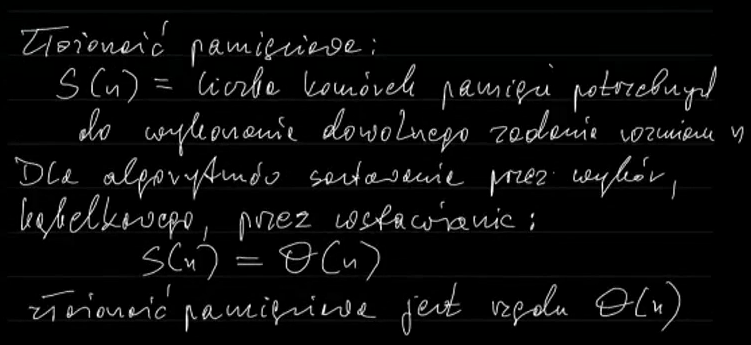 Złożoność pamięciowa:
S(n) = liczba komórek pamięci potrzebnych
do wykonania dowolnego zadania rozmiaru n
Dla algorytmów sortowania przez wybór,
bąbelkowego, przez wstawianie:
S(n) = Θ(n)
złożoność pamięciowa jest rzędu Θ(n)